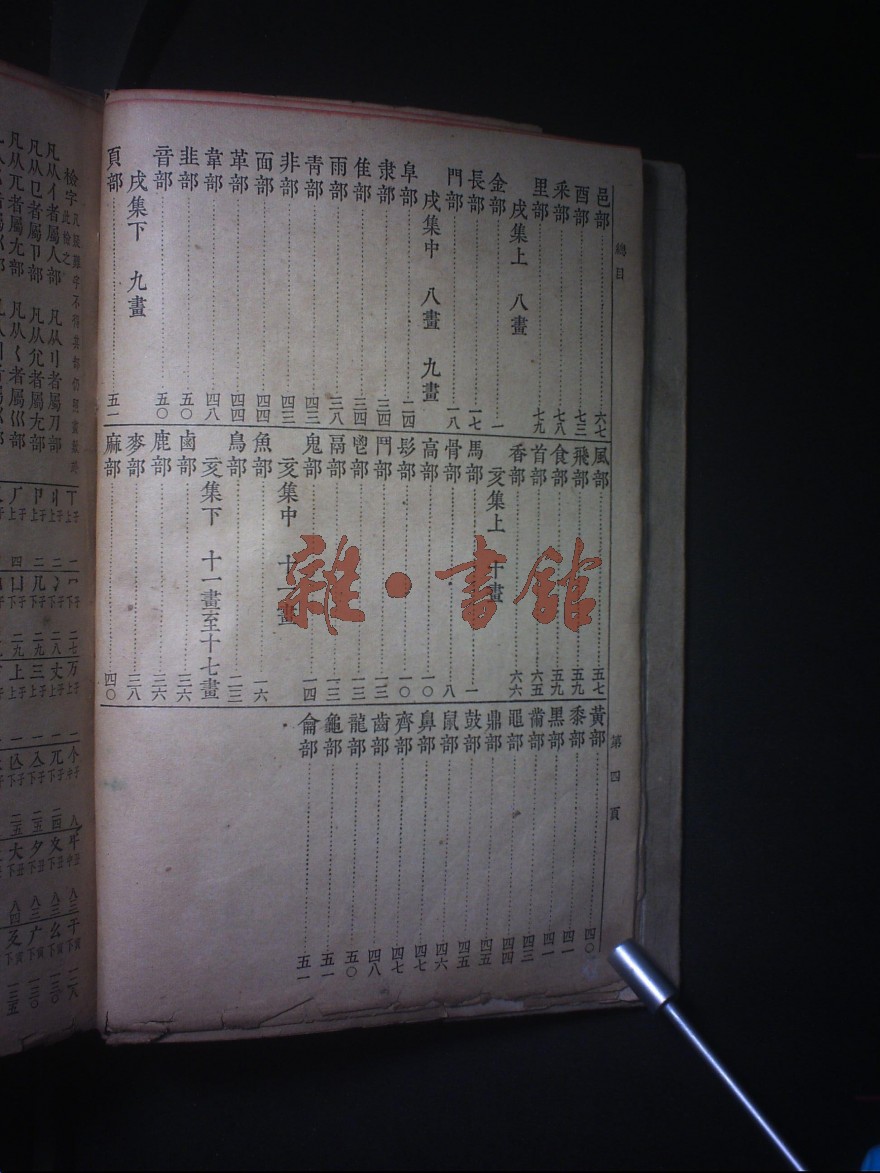 總目
第四頁
邑部 六七
酉部 七三
釆部 七八
里部 七九
戌集上 八畫
金部 一
長部 一七
門部 一八
戌集中 八畫 九畫
阜部 二四
隶部 三四
隹部 三四
雨部 三八
靑部 四三
非部 四三
面部 四四
革部 四四
韋部 四八
韭部 五〇
音部 五〇
戌集下 九畫
頁部 五一
風部 五七
飛部 五九
食部 五九
首部 六五
香部 六六
亥集上 十畫
馬部 一
骨部 八
高部 一〇
髟部 一〇
鬥部 一三
鬯部 一三
鬲部 一三
鬼部 一四
亥集中 十一畫
魚部 一六
鳥部 二三
亥集下 十一畫至十七畫
鹵部 三六
鹿部 三六
麥部 三八
麻部 四〇
黃部 四〇
黍部 四一
黑部 四一
黹部 四三
黽部 四四
鼎部 四五
鼓部 四五
鼠部 四六
鼻部 四七
齊部 四七
齒部 四八
龍部 五〇
龜部 五一
龠部 五一
雜·書館
檢字
凡从亻者屬人部 凡从刂者屬刀部
凡从㔾者屬卩部 凡从允者屬尢部
凡从兀者屬尢部 凡从巜者屬巛部